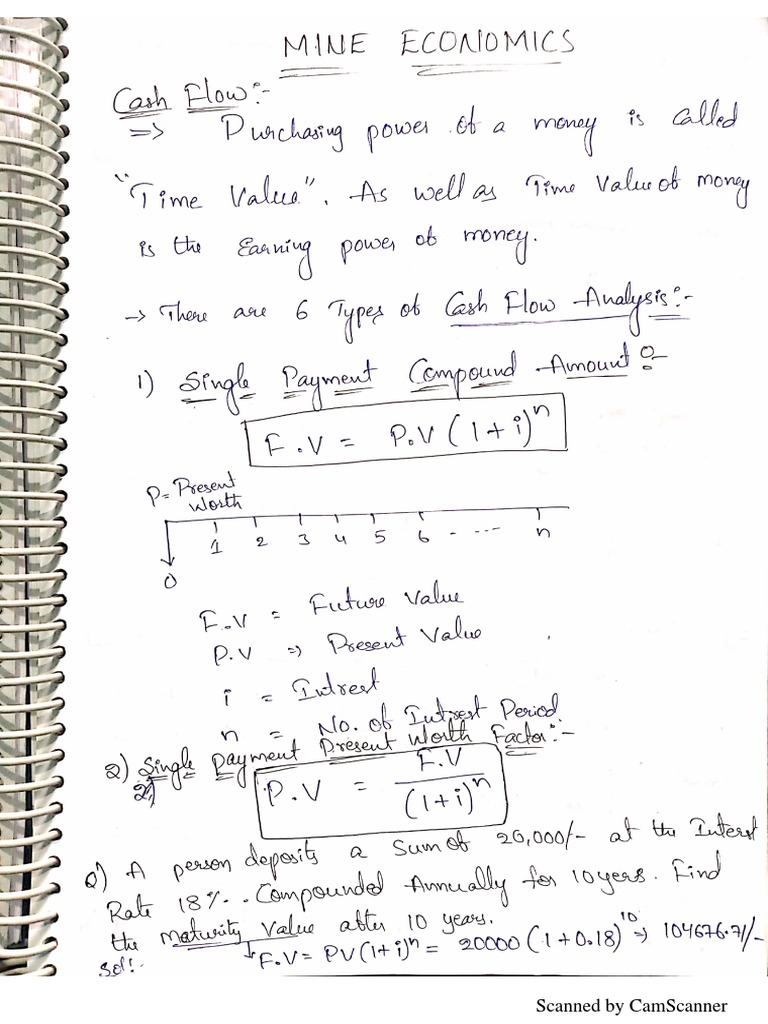 MINE ECONOMICS
Cash Flow:-
=> Purchasing power of a money is called
"Time Value". As well as Time Value of money
is the Earning power of money.
-> There are 6 Types of Cash Flow Analysis:-
1) Single Payment Compound Amount:-
F.V = P.V (1+i)^n
P = Present
Worth
0 1 2 3 4 5 6 - ---- n
F.V = Future Value
P.V => Present Value
i = Intrest
n = No. of Intrest Period.
2) Single Payment Present Worth Factor:-
2)
P.V = F.V / (1+i)^n
Q) A person deposits a Sum of 20,000/- at the Interst
Rate 18%.. Compounded Annually for 10 yers. Find
the maturity Value after 10 years.
Sol:- F.V = PV(1+i)^n = 20000 (1+0.18)^10 => 104676.71/-
Scanned by CamScanner